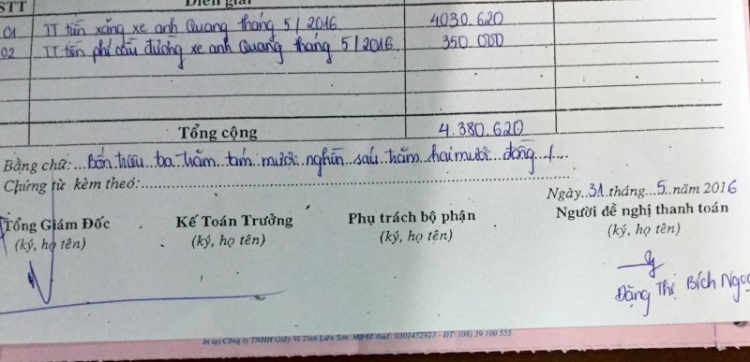 STT Diễn giải
01 TT tiền xăng xe anh Quang tháng 5/2016 4030.620
02 TT tiền phí cầu đường xe anh Quang tháng 5/2016. 350.000
Tổng cộng 4.380.620
Bằng chữ:...Bốn triệu..ba..trăm..tám..mươi..nghìn..sáu..trăm..hai mươi..đồng../....
Chứng từ kèm theo:
Ngày..31.tháng..5.năm 2016
Tổng Giám Đốc Kế Toán Trưởng Phụ trách bộ phận Người đề nghị thanh toán
(ký, họ tên) (ký, họ tên) (ký, họ tên) (ký, họ tên)
Đặng Thị Bích Ngọc
In tại Công ty TNHH Giấy Vi Tính Liên Sơn. thuế: 0301452923 - ĐT: (08) 39 100 555